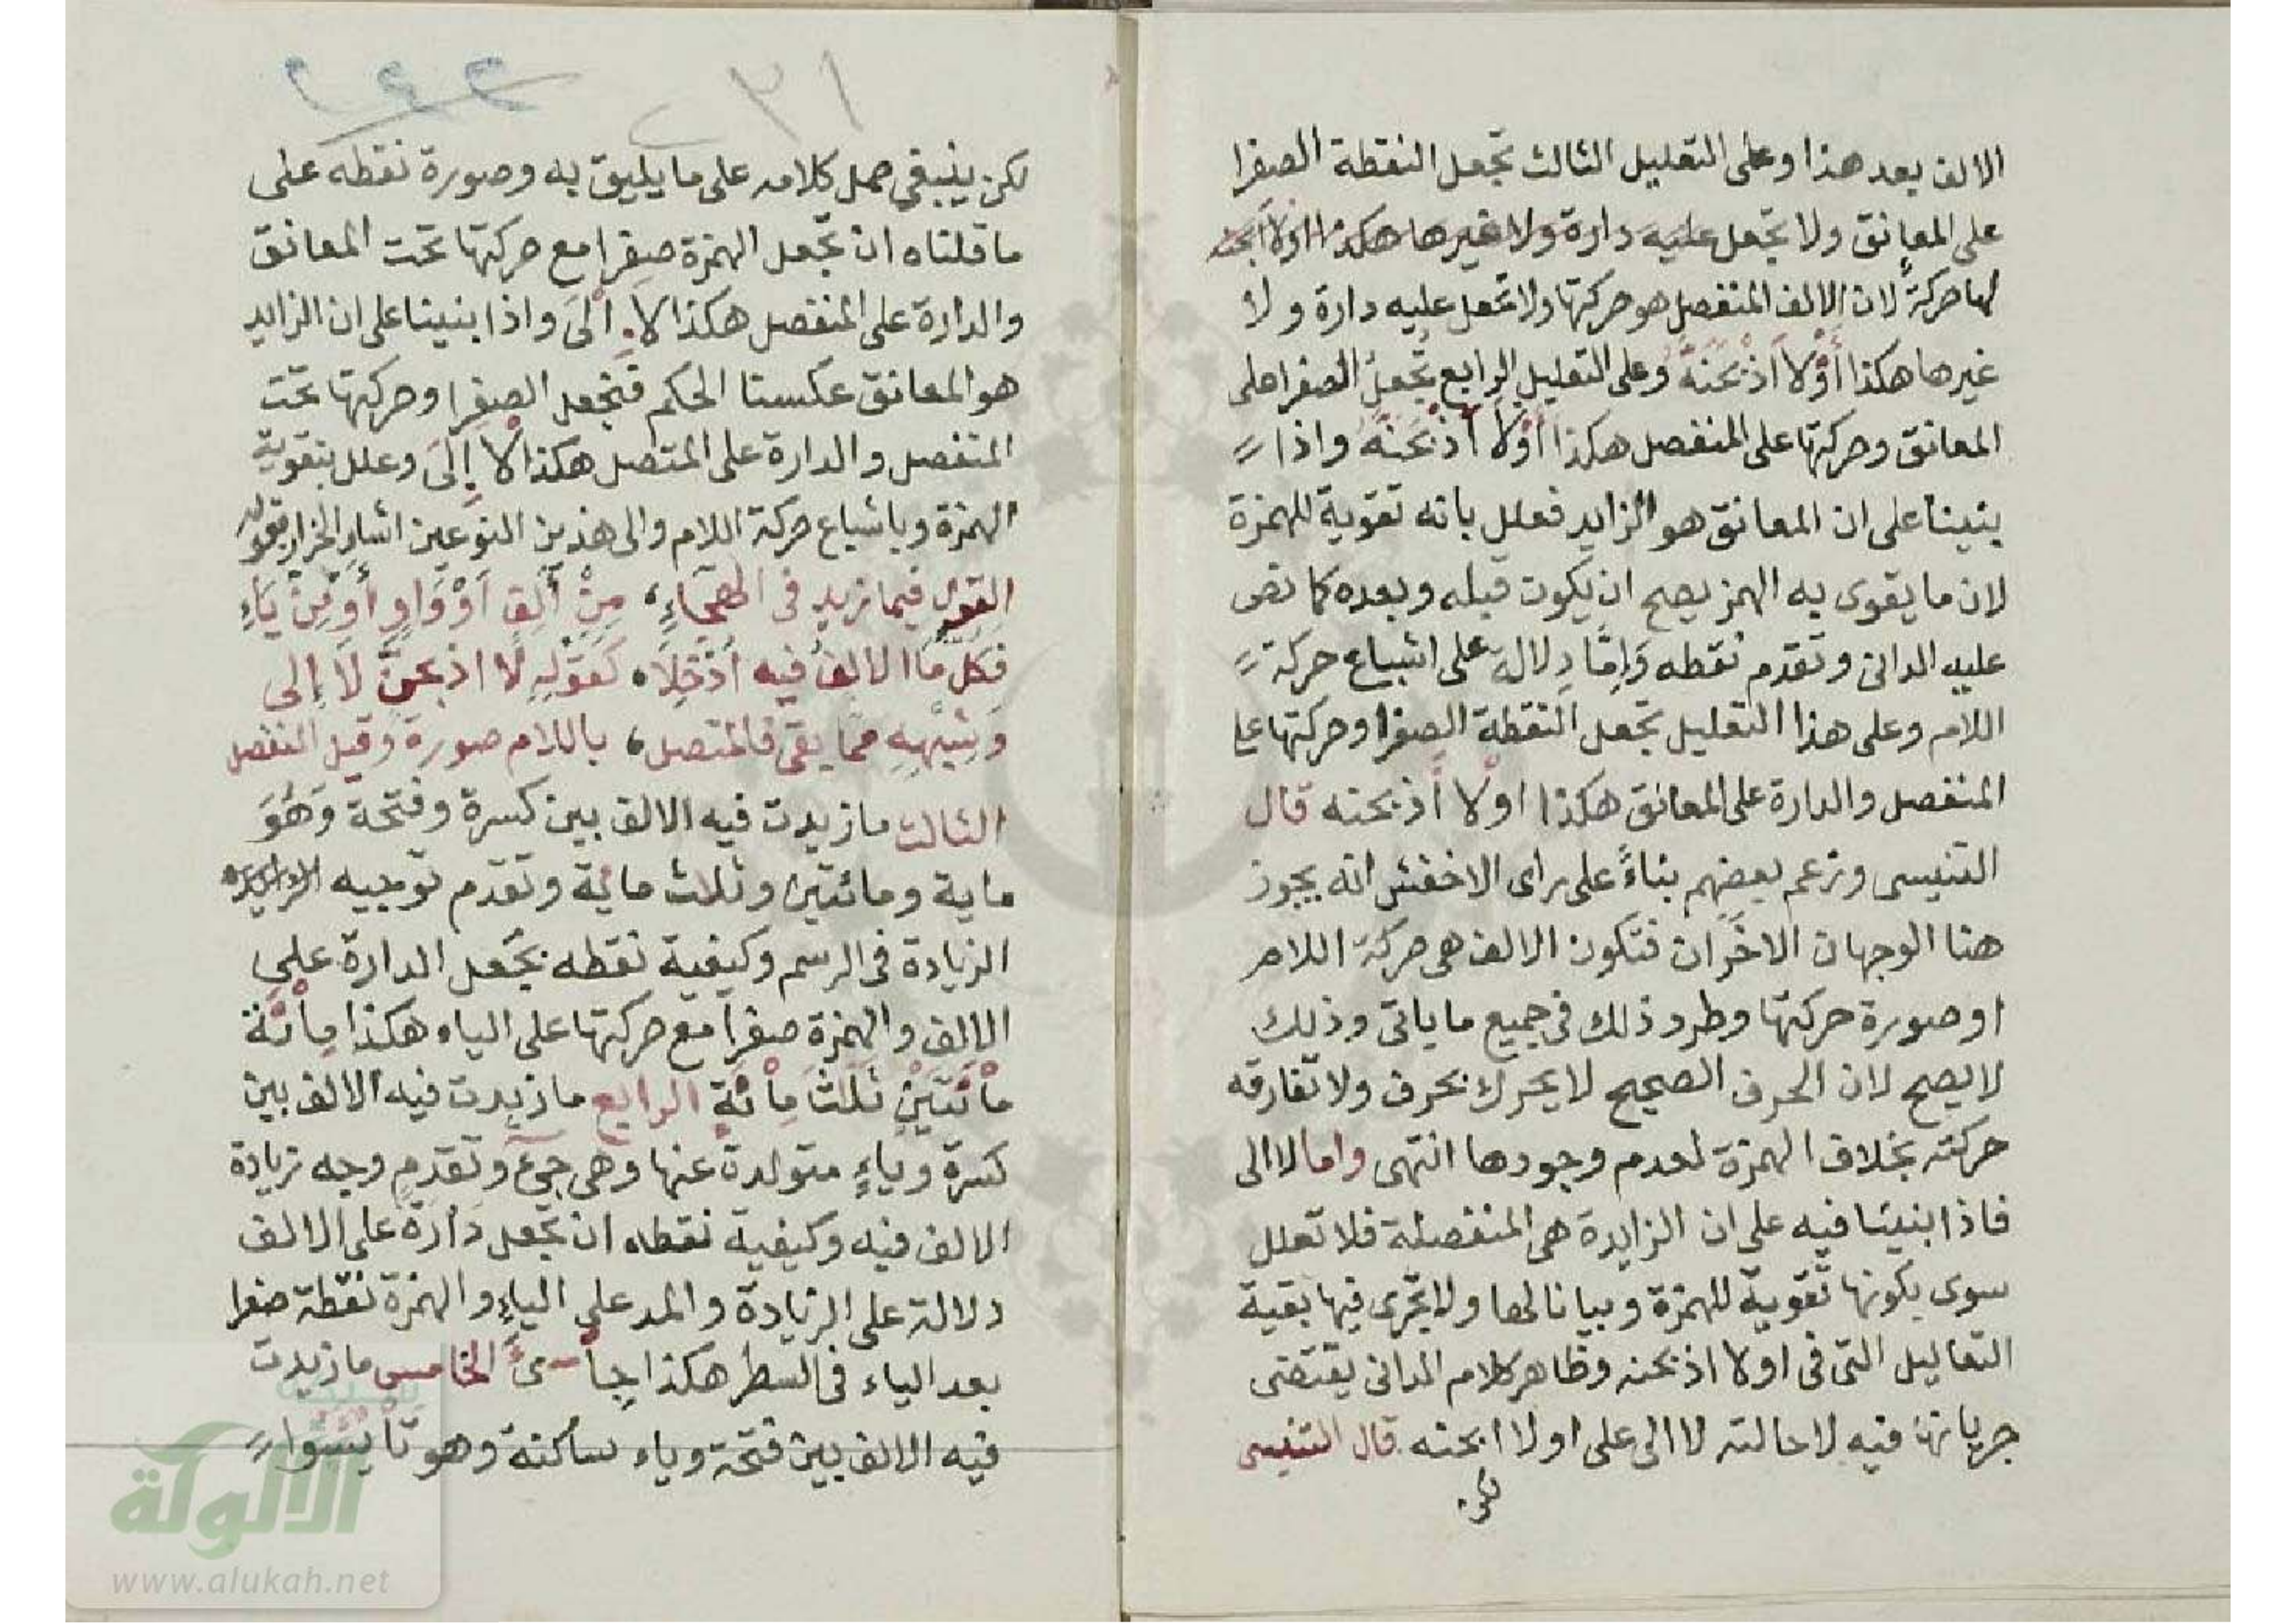 الالف بعد هذا وعلى التعليل الثالث تجعل النقطة الصفرا
على المعانق ولا تجعل عليه دارة ولا غيرها هكذا اولا اذبحنه
لها حركة لان الالف المنفصل هو حركتها ولا تجعل عليه دارة ولا
غيرها هكذا أوْلَا اَذْبَحَنَّهُ وعلى التعليل الرابع تُجعل الصفرا على
المعانق وحركتها على المنفصل هكذا أوْلَا أَذْبَحَنَّهُ واذا
بنينا على ان المعانق هو الزايد فعلل بانه تقوية للهمزة
لان ما يقوى به الهمز يصح ان يكون قبله وبعده كما نص
عليه الدانى وتقدم نقطه وَاِمَّا دلالة على اشباع حركة
اللام وعلى هذا التعليل تجعل النقطة الصفرا وحركتها على
المنفصل والدارة على المعانق هكذا اولا أذبحنه قال
التنيسى وزعم بعضهم بناءً على راى الاخفش انه يجوز
هنا الوجهان الاخَران فتكون الالف هى حركة اللام
او صورة حركتها وطرد ذلك فى جميع ما ياتى وذلك
لا يصح لان الحرف الصحيح لا يحرك بحرف ولا تفارقه
حركته بخلاف الهمزة لعدم وجودها انتهى واما لا الى
فاذا بنينا فيه على ان الزايدة هى المنفصلة فلا تعلل
سوى بكونها تقوية للهمزة وبيانا لها ولا تجرى فيها بقية
التعاليل التى فى اولا اذبحنه وظاهر كلام الدانى يقتضى
جريانها فيه لاحالته لا الى على اولا ابحنه قال التنيسى
لكن
٢٣١
لكن ينبغى حمل كلامه على ما يليق به وصورة نقطه على
ما قلناه ان تجعل الهمزة صفرا مع حركتها تحت المعانق
والدارة على المنفصل هكذا لا الَى واذا بنينا على ان الزايد
هو المعانق عكسنا الحكم فتجعل الصفرا وحركتها تحت
المنفصل والدارة على المتصل هكذا لا إلَى وعلل بتقوية
الهمزة وباشباع حركة اللام والى هذين النوعين اشار الخراز بقوله
القول فيما زيد فى الهجاءِ، مِنْ أَلِفٍ اَوْ وَاوٍ أَوْ مِنْ يَاءِ
فكل ما الالف فيه اُدْخِلَا، كَقَوْلِهِ لَا اذبحنَّ لَا إلى
وَشِبْهِهِ مما بقى فالمتصل، باللام صورة وقيل المنفصل
الثالث ما زيدت فيه الالف بين كسرة وفتحة وَهُوَ
ماية ومائتين وثلاث ماية وتقدم توجيه
الزيادة فى الرسم وكيفية نقطه بجعل الدارة على
الالف والهمزة صفرا مع حركتها على الياء هكذا مِاْئَة
مِاْئَتَيْنِ ثَلَثَ مِاْئَةٍ الرابع ما زيدت فيه الالف بين
كسرة وياءٍ متولدة عنها وهى جىءَ وتقدم وجه زيادة
الالف فيه وكيفية نقطه ان تجعل دارة على الالف
دلالة على الزيادة والمد على الياء والهمزة نقطة صفرا
بعد الياء فى السطر هكذا جِاىءَ الخامس ما زيدت
فيه الالف بين فتحة وياء ساكنة وهو تَاْيْئَسُوا
الالوكة
www.alukah.net